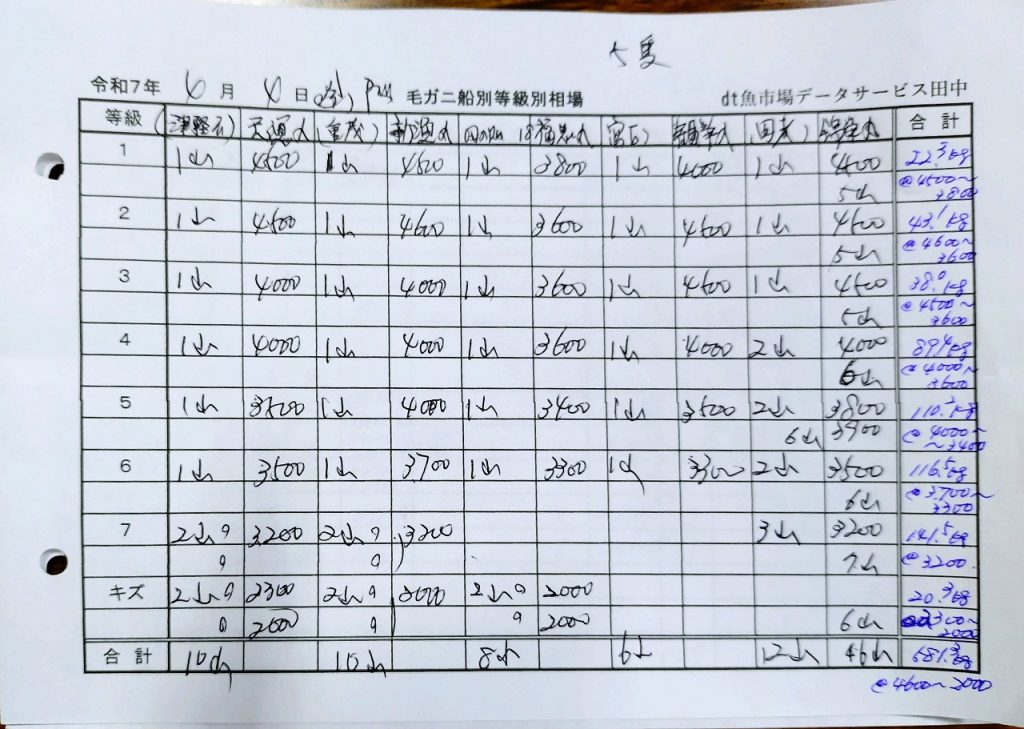 5隻
令和7年 6月 4日 毛ガニ船別等級別相場 dt魚市場データサービス田中
等級 (津軽石) 天運丸 (重茂) 新運丸 (宮古) (田老) 合計
1 1山 4500 1山 4500 1山 3800 1山 4000 1山 4400 22.3kg
5山 @4500〜3800
2 1山 4500 1山 4600 1山 3600 1山 4500 1山 4500 43.1kg
5山 @4600〜3600
3 1山 4000 1山 4000 1山 3600 1山 4500 1山 4500 38.0kg
5山 @4500〜3600
4 1山 4000 1山 4000 1山 3600 1山 4000 2山 4000 89.4kg
6山 @4000〜3600
5 1山 3500 1山 4000 1山 3400 1山 3500 2山 3800 110.2kg
6山 3900 @4000〜〜3400
6 1山 3500 1山 3.700 1山 3300 1山 3300 2山 3500 116.5kg
6山 @3.700〜3300
7 2山 9 3200 2山 9 3200 3山 3200 141.5kg
9 9 7山 @3200
キズ 2山 9 2300 2山 9 2000 2山 9 2000 20.3kg
9 2000 9 9 2000 6山 2300〜2000
合計 10山 10山 8山 6山 12山 46山 681.3kg
@4600〜2000